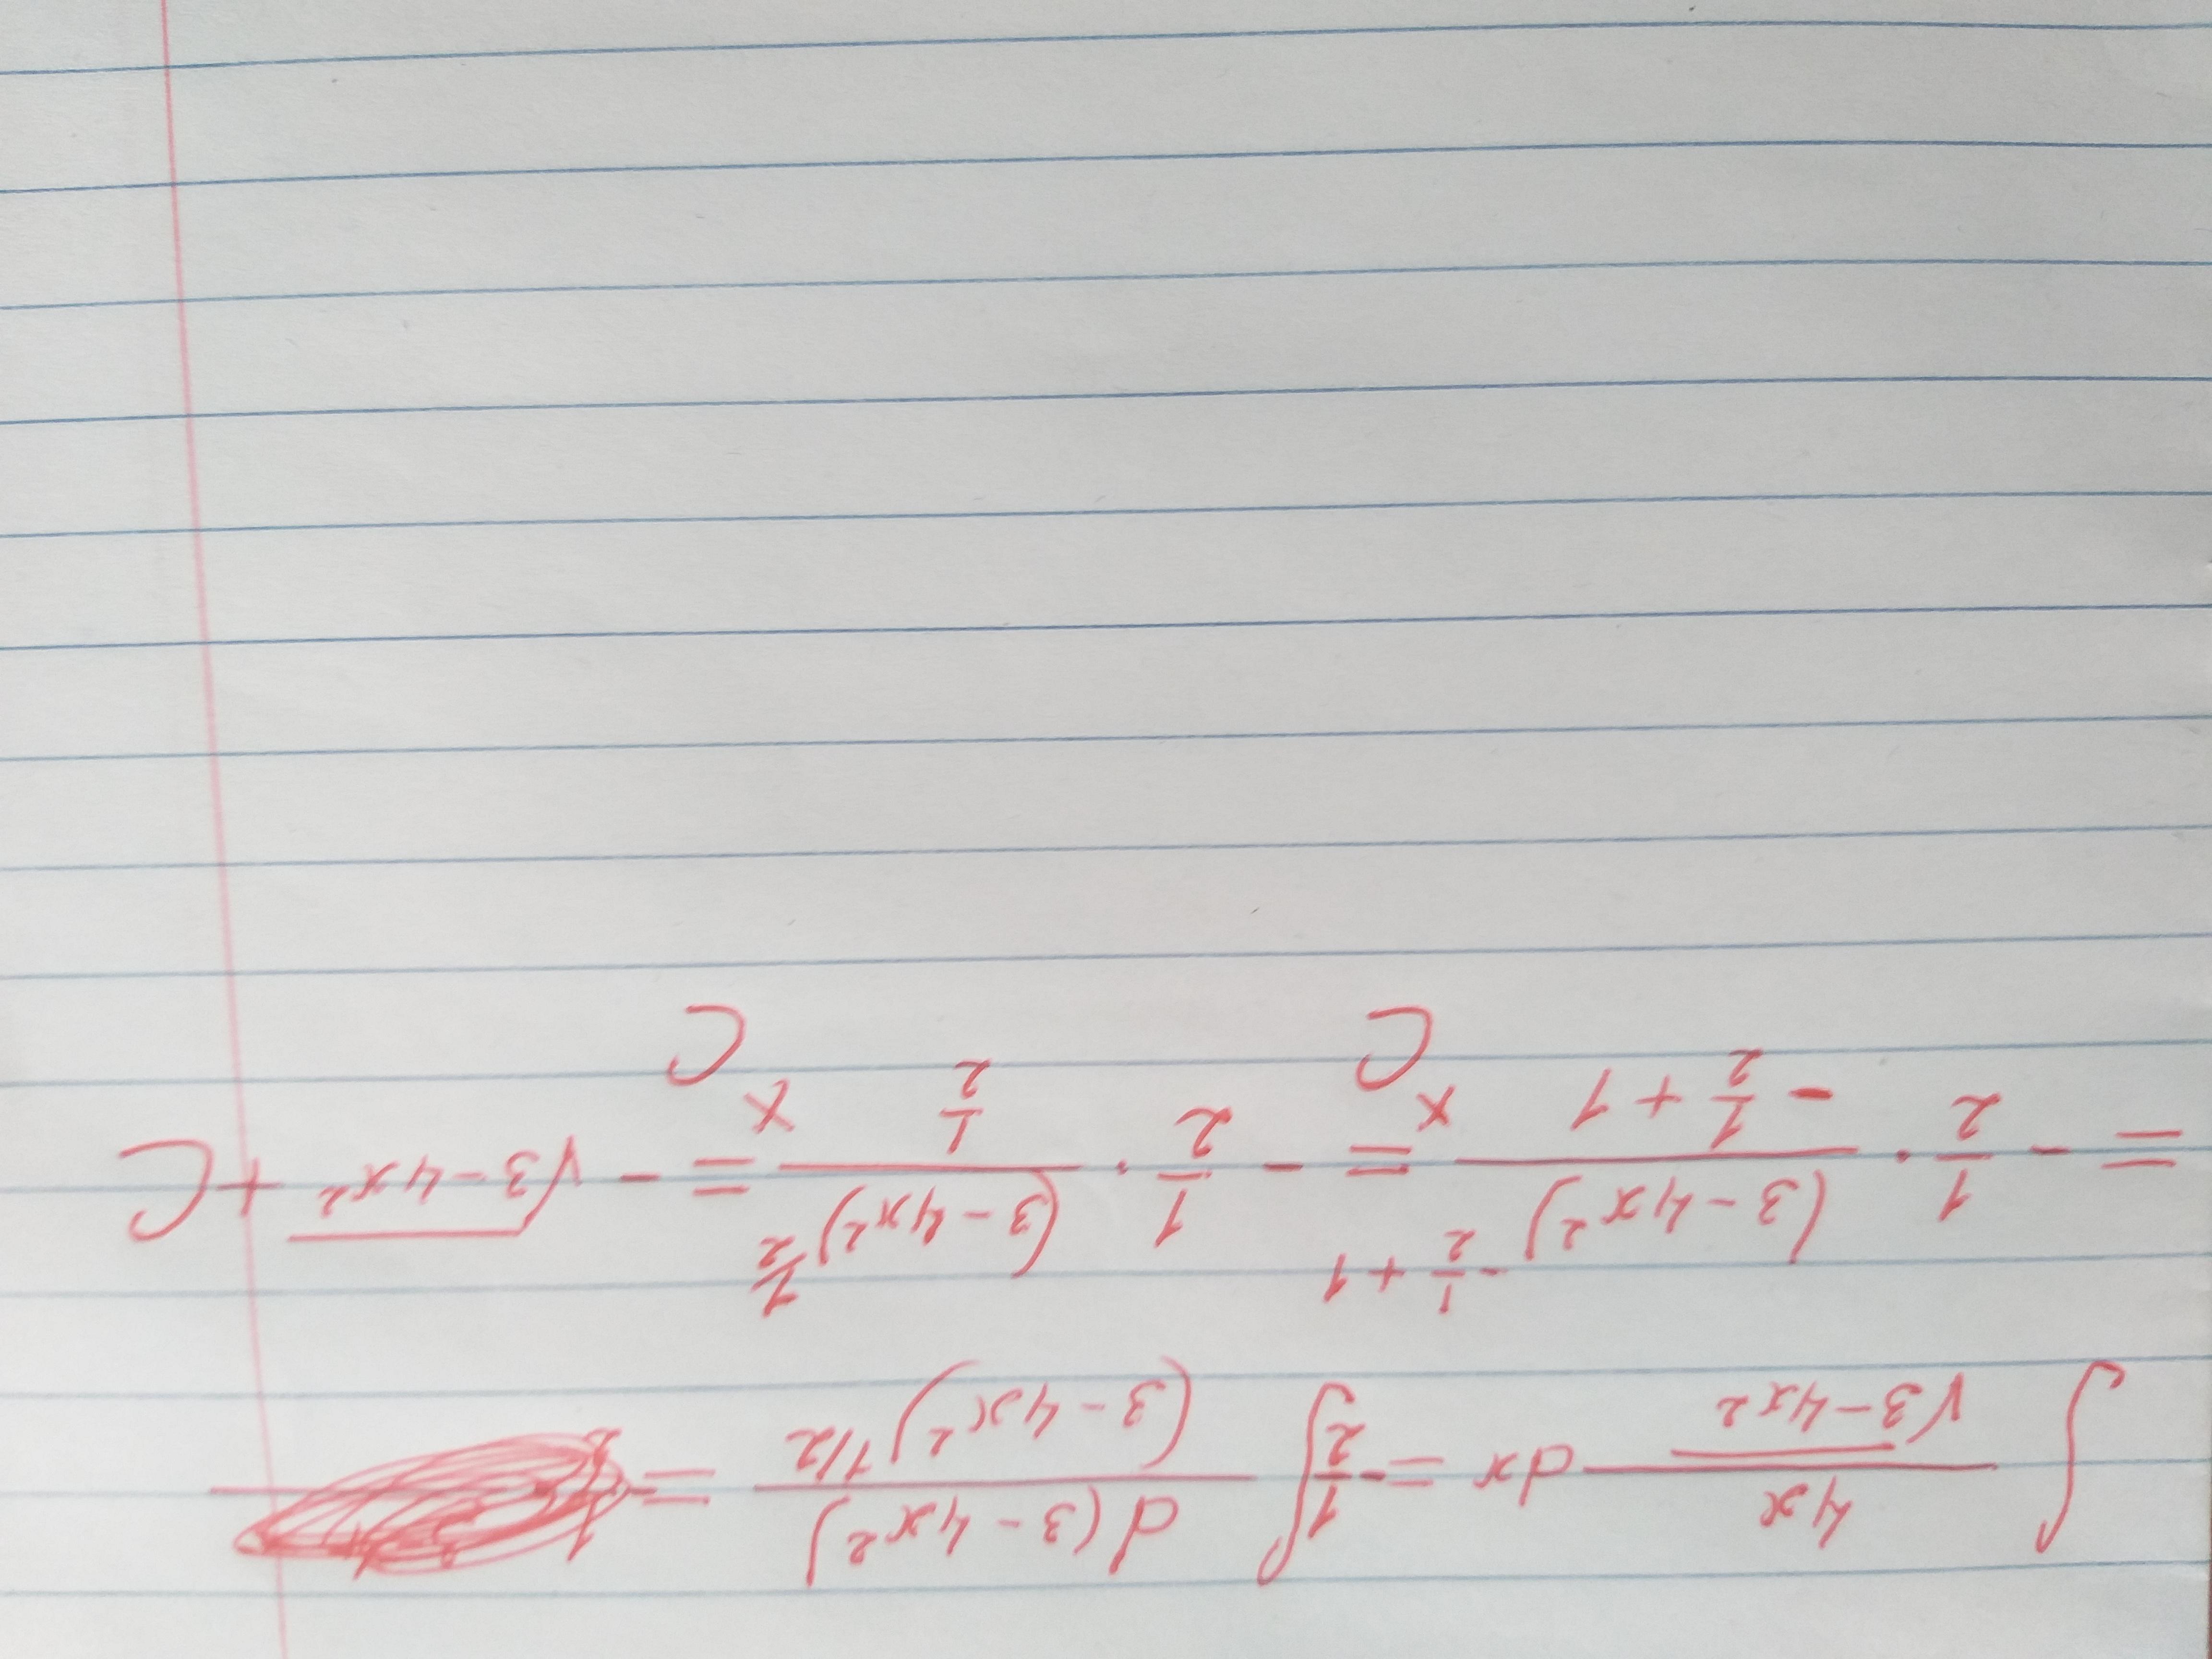 ∫ 4x/√(3-4x²) dx = -1/2 ∫ d(3-4x²)/(3-4x²)^1/2 =
= -1/2 · (3-4x²)^(-1/2+1)/(-1/2+1) × C = -1/2 · (3-4x²)^(1/2)/(1/2) × C = -√(3-4x²) + C